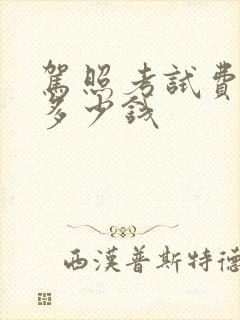 駕照考試費
多少錢
西漢普斯特德